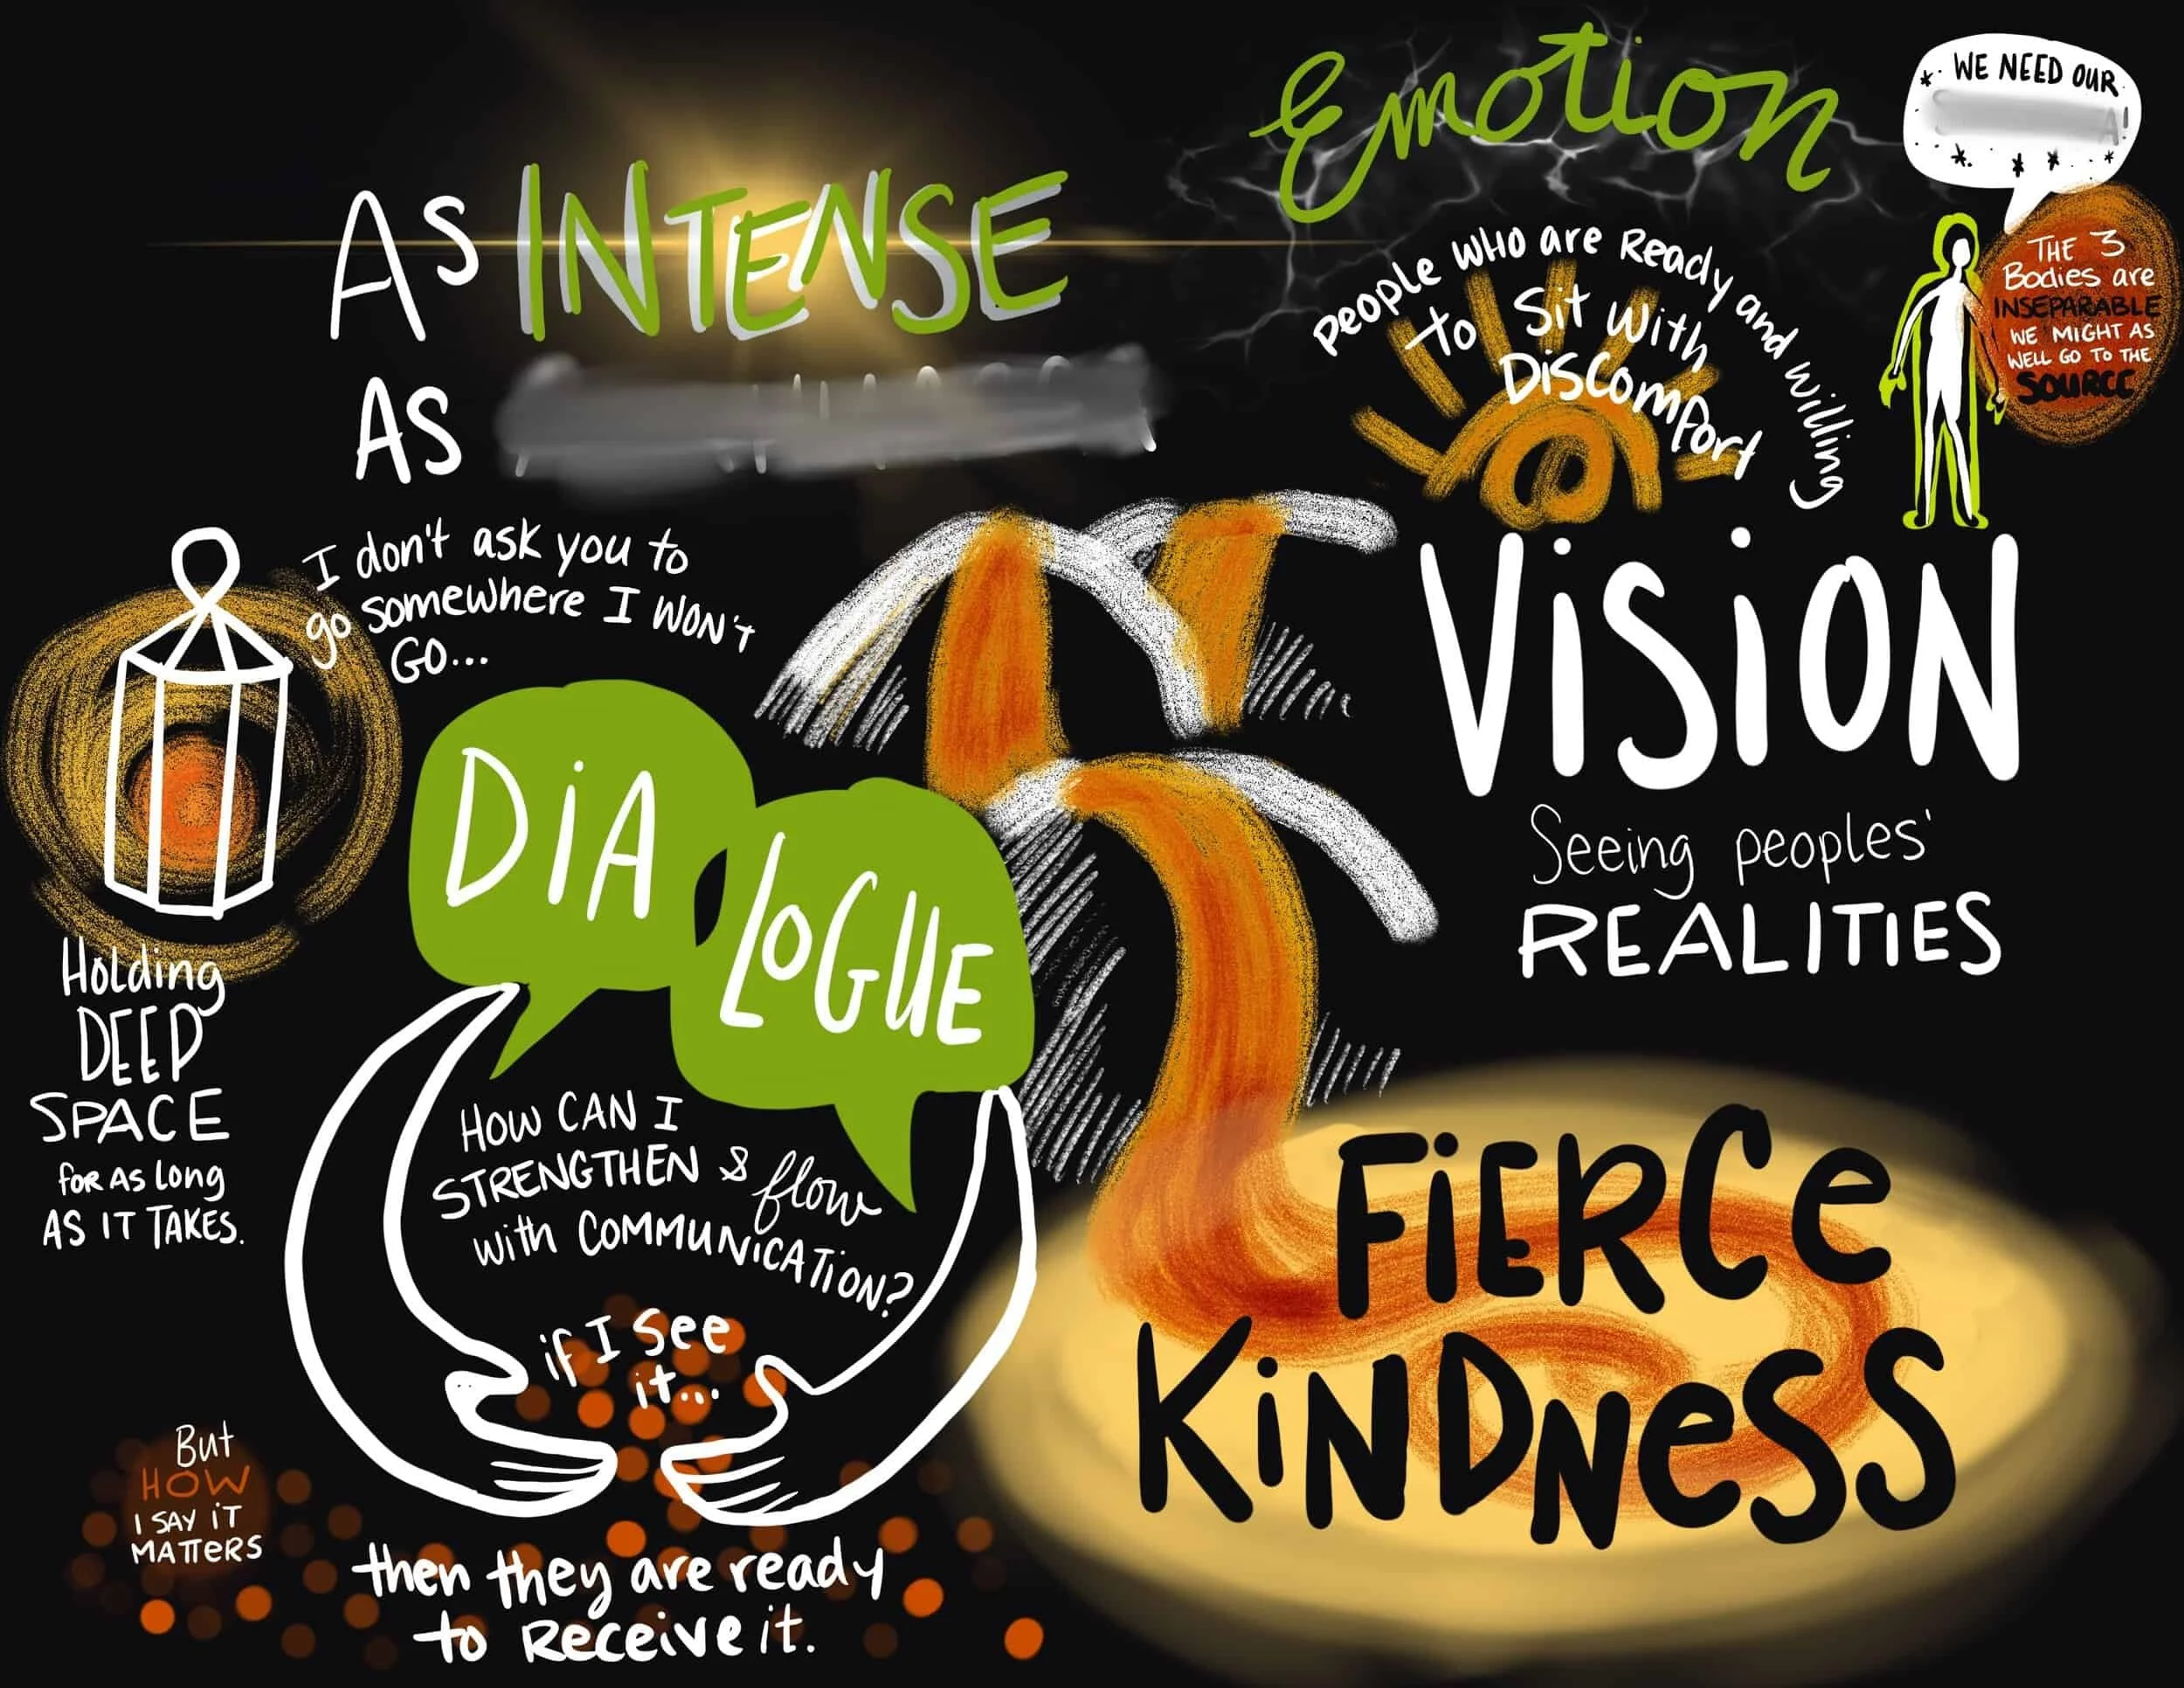 As INTENSE
AS
Emotion
WE NEED OUR
THE 3
Bodies are
INSEPARABLE
WE MIGHT AS
WELL GO TO THE
SOURCE
People WHO are Ready and willing
to Sit with
DISCOMFORT
ViSiON
Seeing peoples'
REALITIES
I don't ask you to
go somewhere I WON'T
GO...
Holding
DEEP
SPACE
FOR AS Long
AS IT TAKES.
DiA
LOGUE
HOW CAN I
STRENGTHEN & flow
with COMMUNICATION?
if I See
it...
then they are ready
to Receive it.
But
HOW
I SAY iT
MATTERS
FiERCe
KiNDNeSS